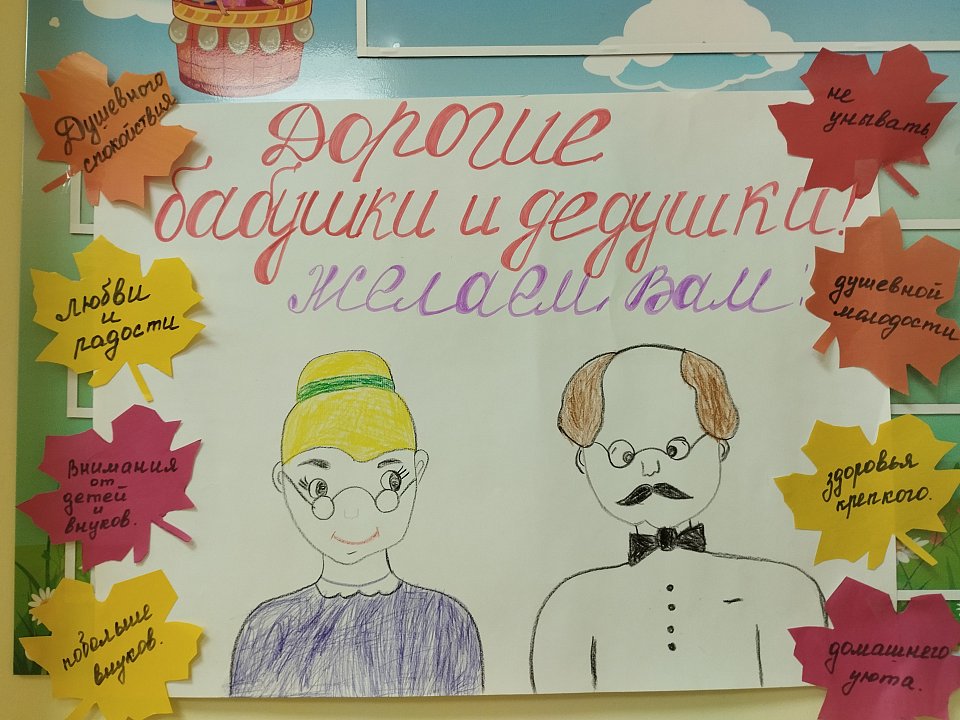 Дорогие
бабушки и дедушки!
Желаем Вам:
Душевного
спокойствия
любви
и
радости
внимания
от
детей
и
внуков.
побольше
внуков.
не
унывать.
душевной
молодости
здоровья
крепкого.
домашнего
уюта.